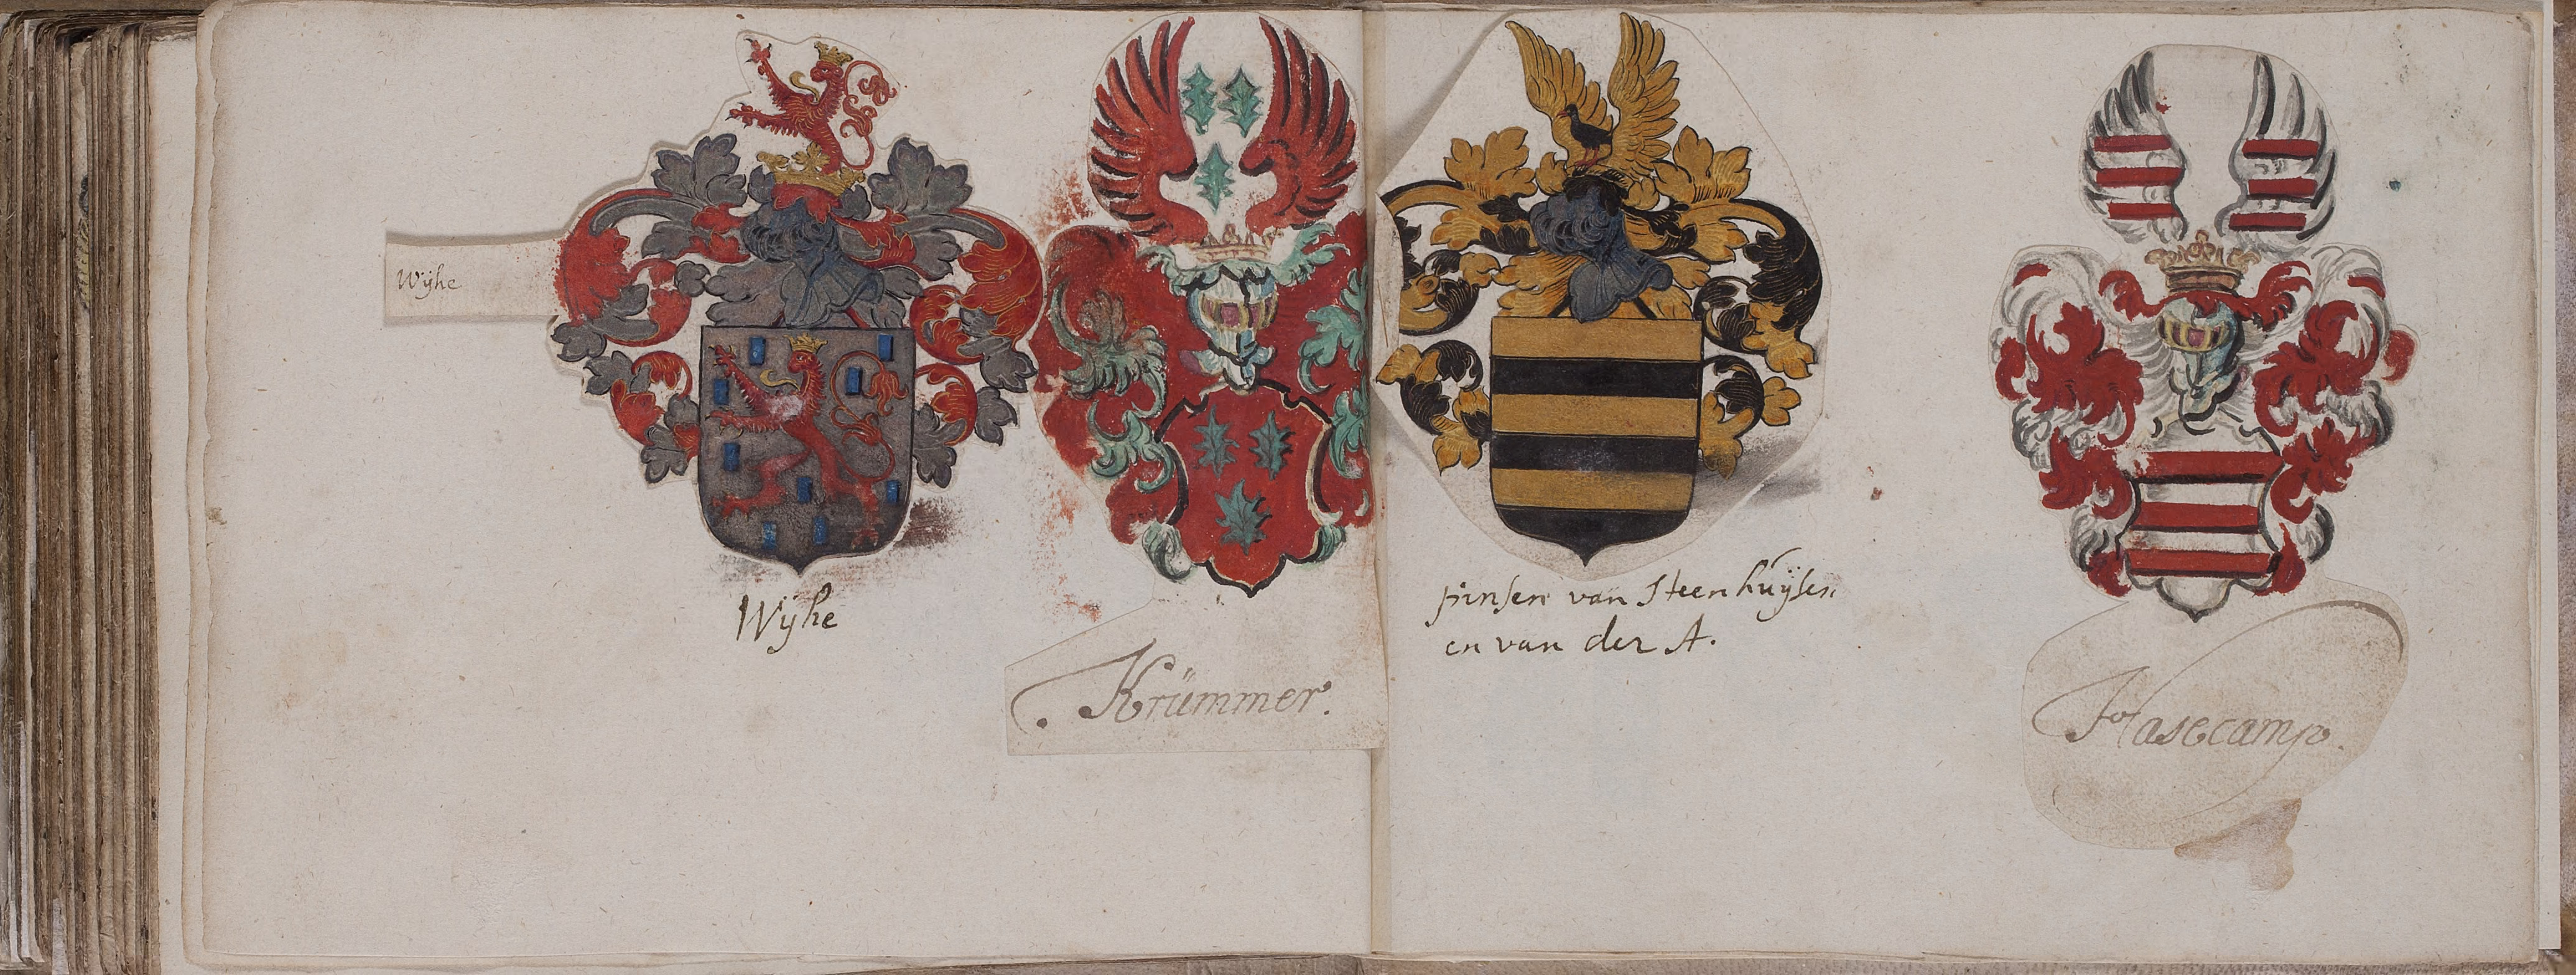 Wijhe
Wÿhe
Krümmer.
prinsen van Steenhuÿsen
en van der A.
Hasecamp.